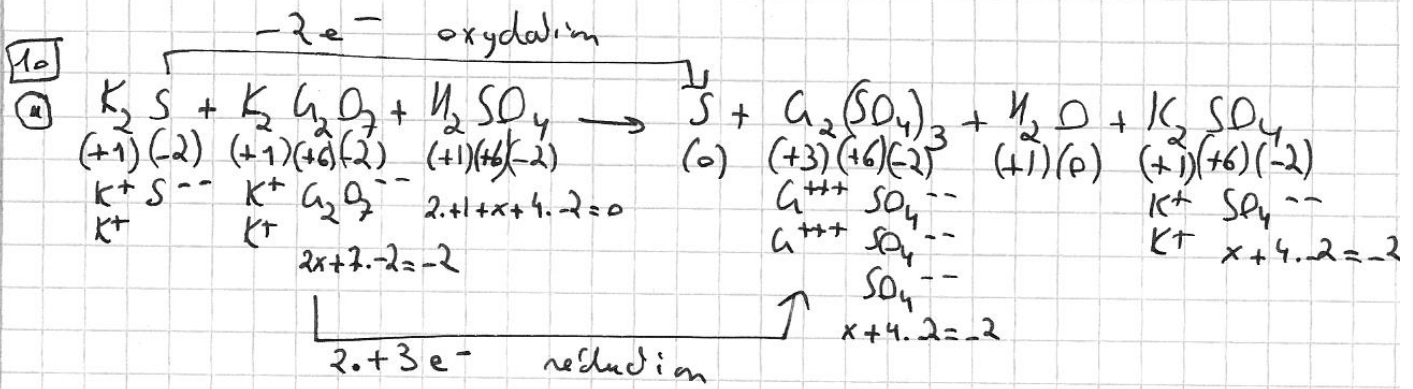 -2e⁻ oxydation
10
a K₂S + K₂Cr₂O₇ + H₂SO₄ → S + Cr₂(SO₄)₃ + H₂O + K₂SO₄
(+1)(-2) (+1)(+6)(-2) (+1)(+6)(-2) (0) (+3)(+6)(-2) (+1)(0) (+1)(+6)(-2)
K⁺ S⁻⁻ K⁺ Cr₂O₇⁻⁻ 2.+1+x+4.-2=0 Cr⁺⁺⁺ SO₄⁻⁻ K⁺ SO₄⁻⁻
K⁺ K⁺ Cr⁺⁺⁺ SO₄⁻⁻ K⁺ x+4.-2=-2
2x+7.-2=-2 SO₄⁻⁻
x+4.-2=-2
2.+3e⁻ réduction